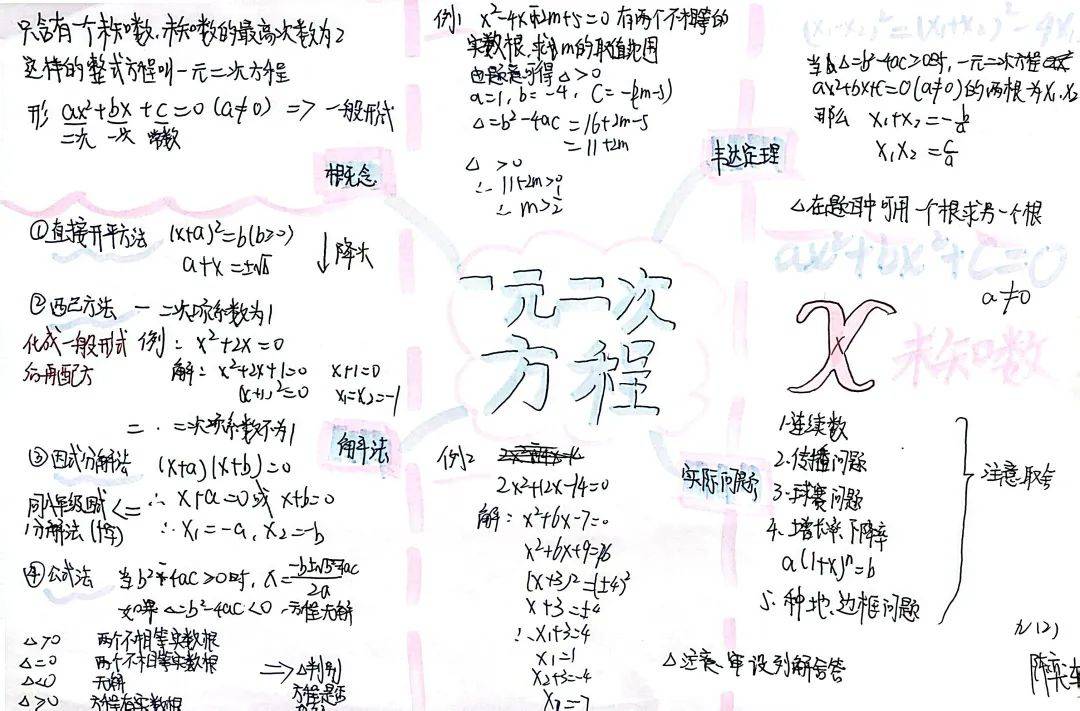 只含有一个未知数,未知数的最高次数为2
这样的整式方程叫一元二次方程
形 ax²+bx+c=0(a≠0) => 一般形式
二次 一次 常数
概念
①直接开平方法 (x+a)²=b(b≥0)
a+x=±√b
↓降次
②配方法 一 二次项系数为1
化成一般形式 例: x²+2x=0
后再配方 解: x²+2x+1=0 x+1=0
(x+1)²=0 x₁=x₂=-1
二.二次项系数不为1
解法
③因式分解法 (x+a)(x+b)=0
∴ x+a=0或 x+b=0
∴ x₁=-a, x₂=-b
④公式法 当b²-4ac>0时, x=-b±√b²-4ac/2a
如果△=b²-4ac<0 方程无解
△>0 两个不相等实数根
△=0 两个不相等实数根
△<0 无解
△≥0 方程有实数根
=>△判别
方程是否
例1 x²-4x-2m+5=0 有两个不相等的
实数根,求m的取值范围
由题意可得△>0
a=1, b=-4, c=-(2m-5)
△=b²-4ac=16+2m-5
=11+2m
△>0
∴ 11+2m>0
一元二次
方程
例2
2x²+12x-14=0
解: x²+6x-7=0
x²+6x+9=16
(x+3)²=(±4)²
x+3=±4
∴x₁+3=4
x₁=1
x₂+3=-4
x₂=-7
(x₁-x₂)²=(x₁+x₂)²-4x₁
当△=b²-4ac>0时,一元二次方程
ax²+bx+c=0(a≠0)的两根为x₁,x₂
那么 x₁+x₂=-b/a
x₁x₂=c/a
韦达定理
△在题目中可用一个根求另一个根
ax²+bx²+c=0
a≠0
X 未知数
实际问题
1.连续数
2.传播问题
3.球赛问题
4.增长率,下降率
a(1+x)ⁿ=b
5.种地、边框问题
注意取舍
△注意审设列解答